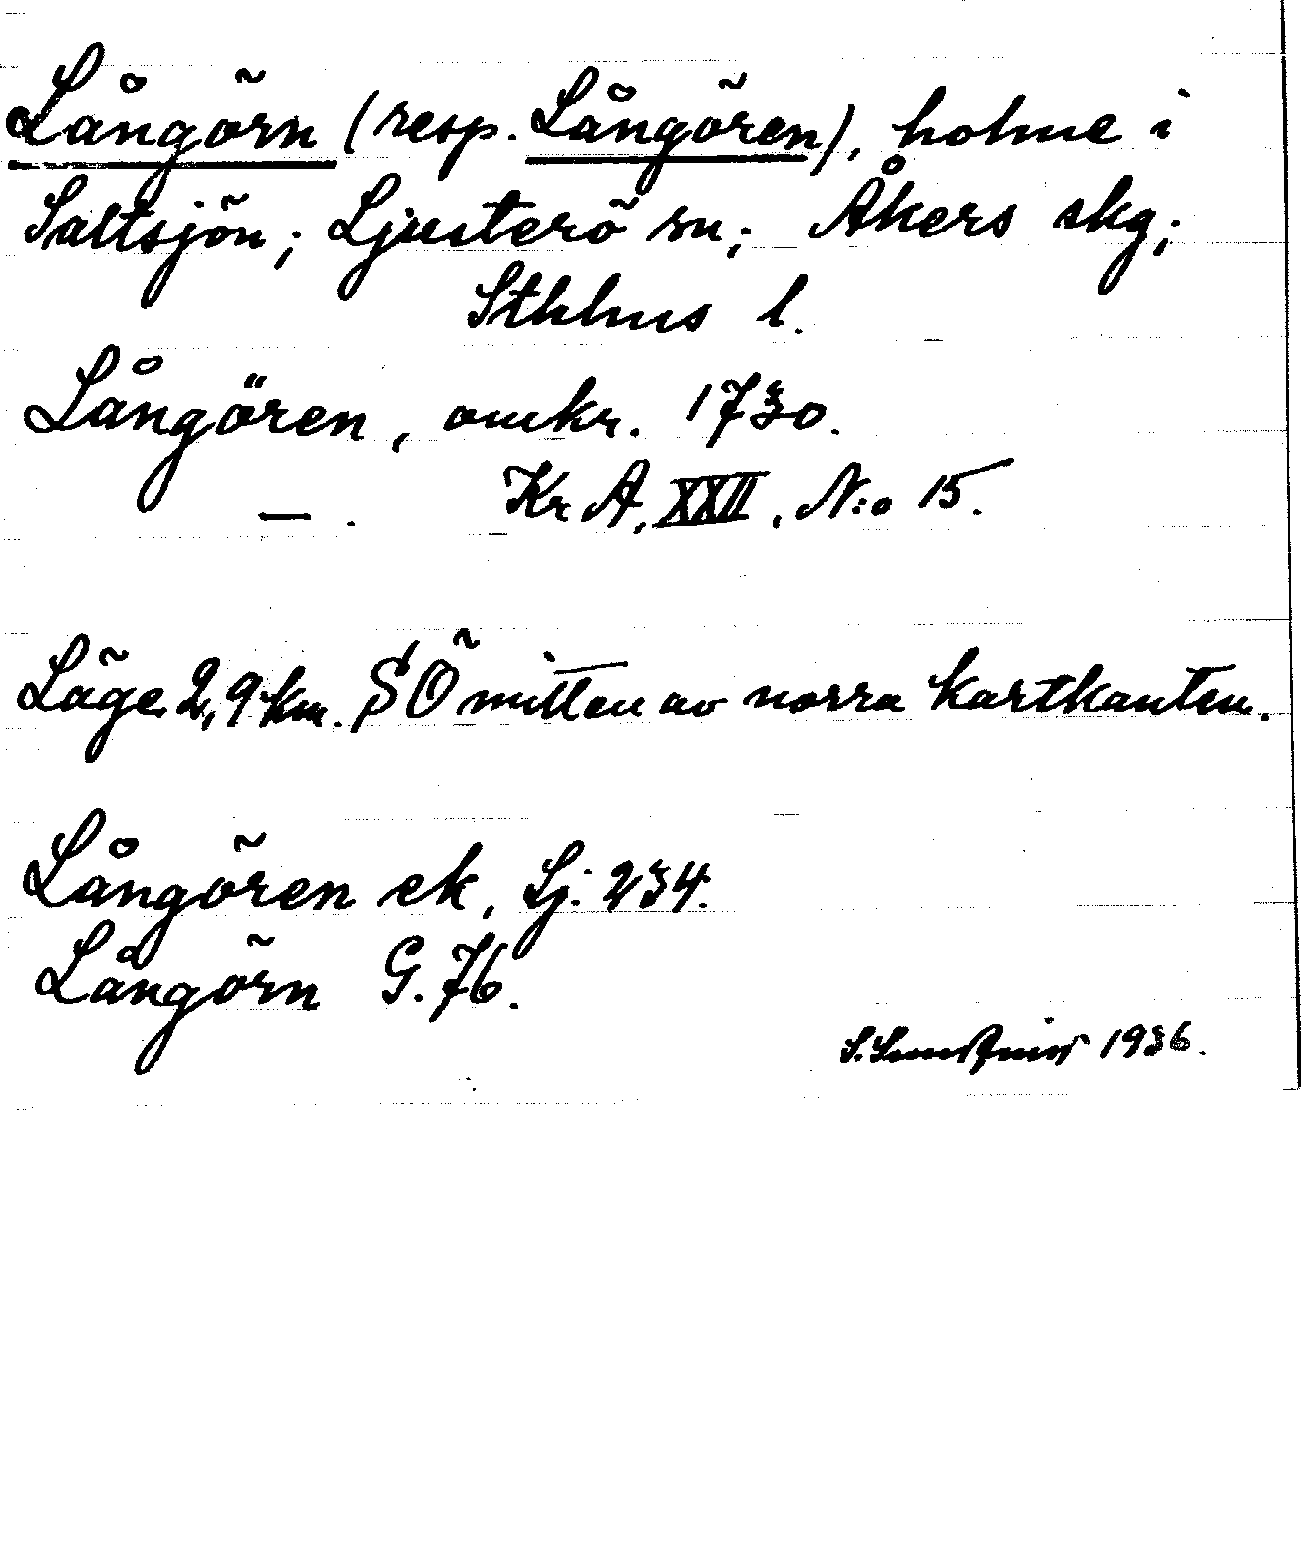 Långörn (resp. Långören), holme i
Saltsjön; Ljusterö sn; Åkers skg;
Sthlms l.
Långören, omkr. 1730.
— . Kr A, XXII, N:o 15.
Läge 2,9 km. SÖ mitten av norra kartkanten.
Långören ek, Lj: 234.
Långörn G. 76.
S. 1936.